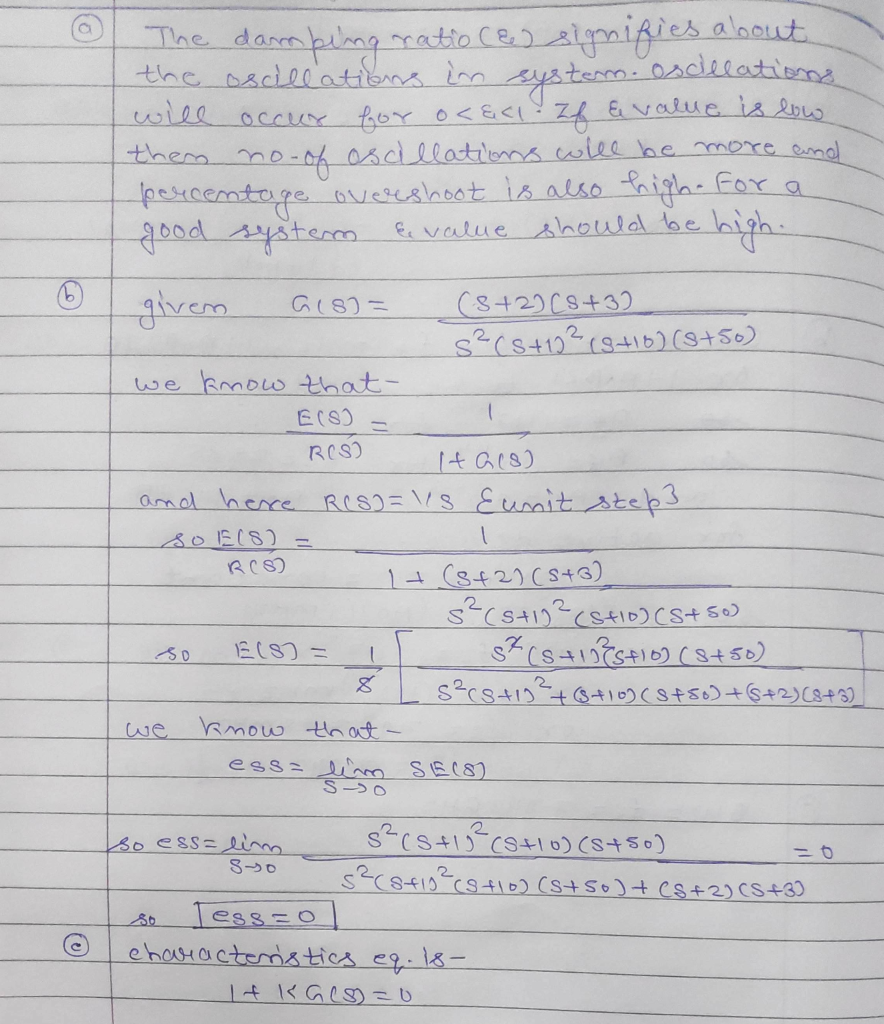 (a) The damping ratio (ξ) signifies about
the oscillations in system. oscillations
will occur for 0<ξ<1. If ξ value is low
then no-of oscillations will be more and
percentage overshoot is also high. For a
good system ξ value should be high.
(b) given G(S) = (S+2)(S+3) / S²(S+1)²(S+10)(S+50)
we know that-
E(S)/R(S) = 1 / 1+G(S)
and here R(S)=1/S {unit step}
so E(S)/R(S) = 1 / 1 + (S+2)(S+3) / S²(S+1)²(S+10)(S+50)
so E(S) = 1/S [ S²(S+1)²(S+10)(S+50) / S²(S+1)²+(S+10)(S+50)+(S+2)(S+3) ]
we know that-
ess = lim S→0 SE(S)
so ess = lim S→0 S²(S+1)²(S+10)(S+50) / S²(S+1)²(S+10)(S+50)+(S+2)(S+3) = 0
so ess=0
(c) characteristics eq. is-
1+KG(S)=0